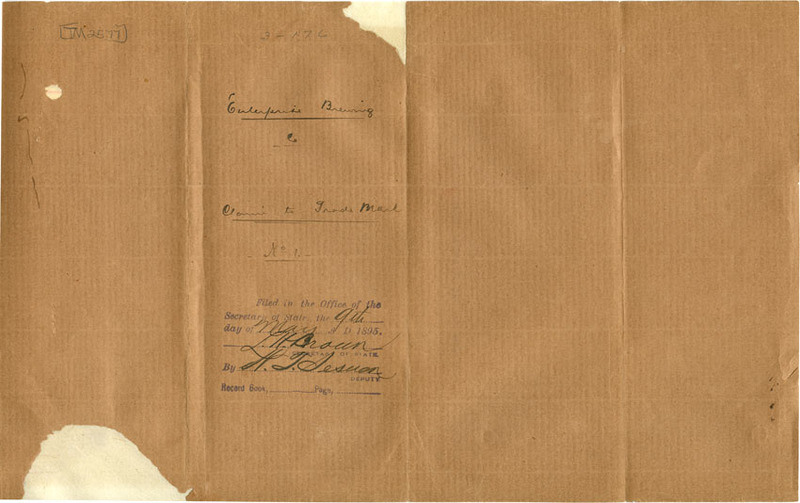 [TM2577]
Enterprise Brewing
Co
Claim to Trade Mark
No 1.
Filed in the Office of the
Secretary of State, the 9th
day of May A D 1895.
L. H. Brown
SECRETARY OF STATE
By
DEPUTY
Record Book, Page,